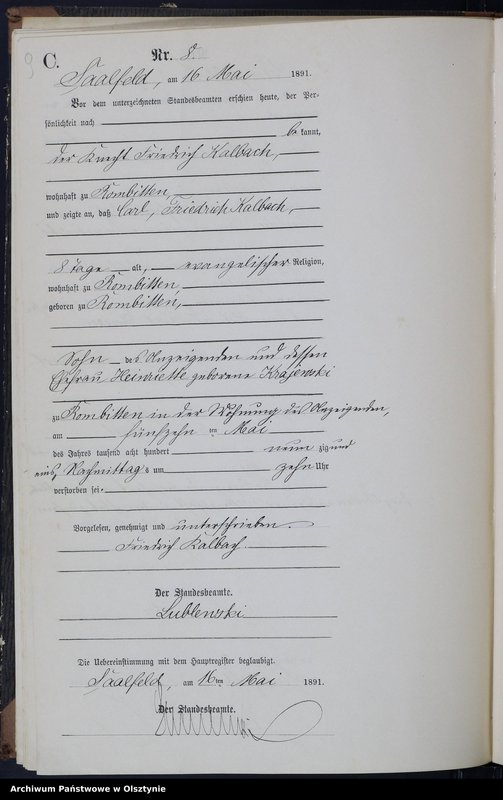 9
C.
Nr. 8.
Saalfeld, am 16 Mai 1891.
Vor dem unterzeichneten Standesbeamten erschien heute, der Per-
sönlichkeit nach
be kannt,
der Knecht Friedrich Kalbach,
wohnhaft zu Rombitten,
und zeigte an, daß Carl, Friedrich Kalbach,
8 Tage alt, evangelischer Religion,
wohnhaft zu Rombitten,
geboren zu Rombitten,
Sohn des Anzeigenden und dessen
Ehefrau Henriette geborene Krajewski
zu Rombitten in der Wohnung des Anzeigenden,
am fünfzehn ten Mai
des Jahres tausend acht hundert neun zig und
eins, Nachmittags um zehn Uhr
verstorben sei.
Vorgelesen, genehmigt und unterschrieben.
Friedrich Kalbach.
Der Standesbeamte.
Lublewski
Die Uebereinstimmung mit dem Hauptregister beglaubigt.
Saalfeld, am 16ten Mai 1891.
Der Standesbeamte.
Archiwum Państwowe w Olsztynie